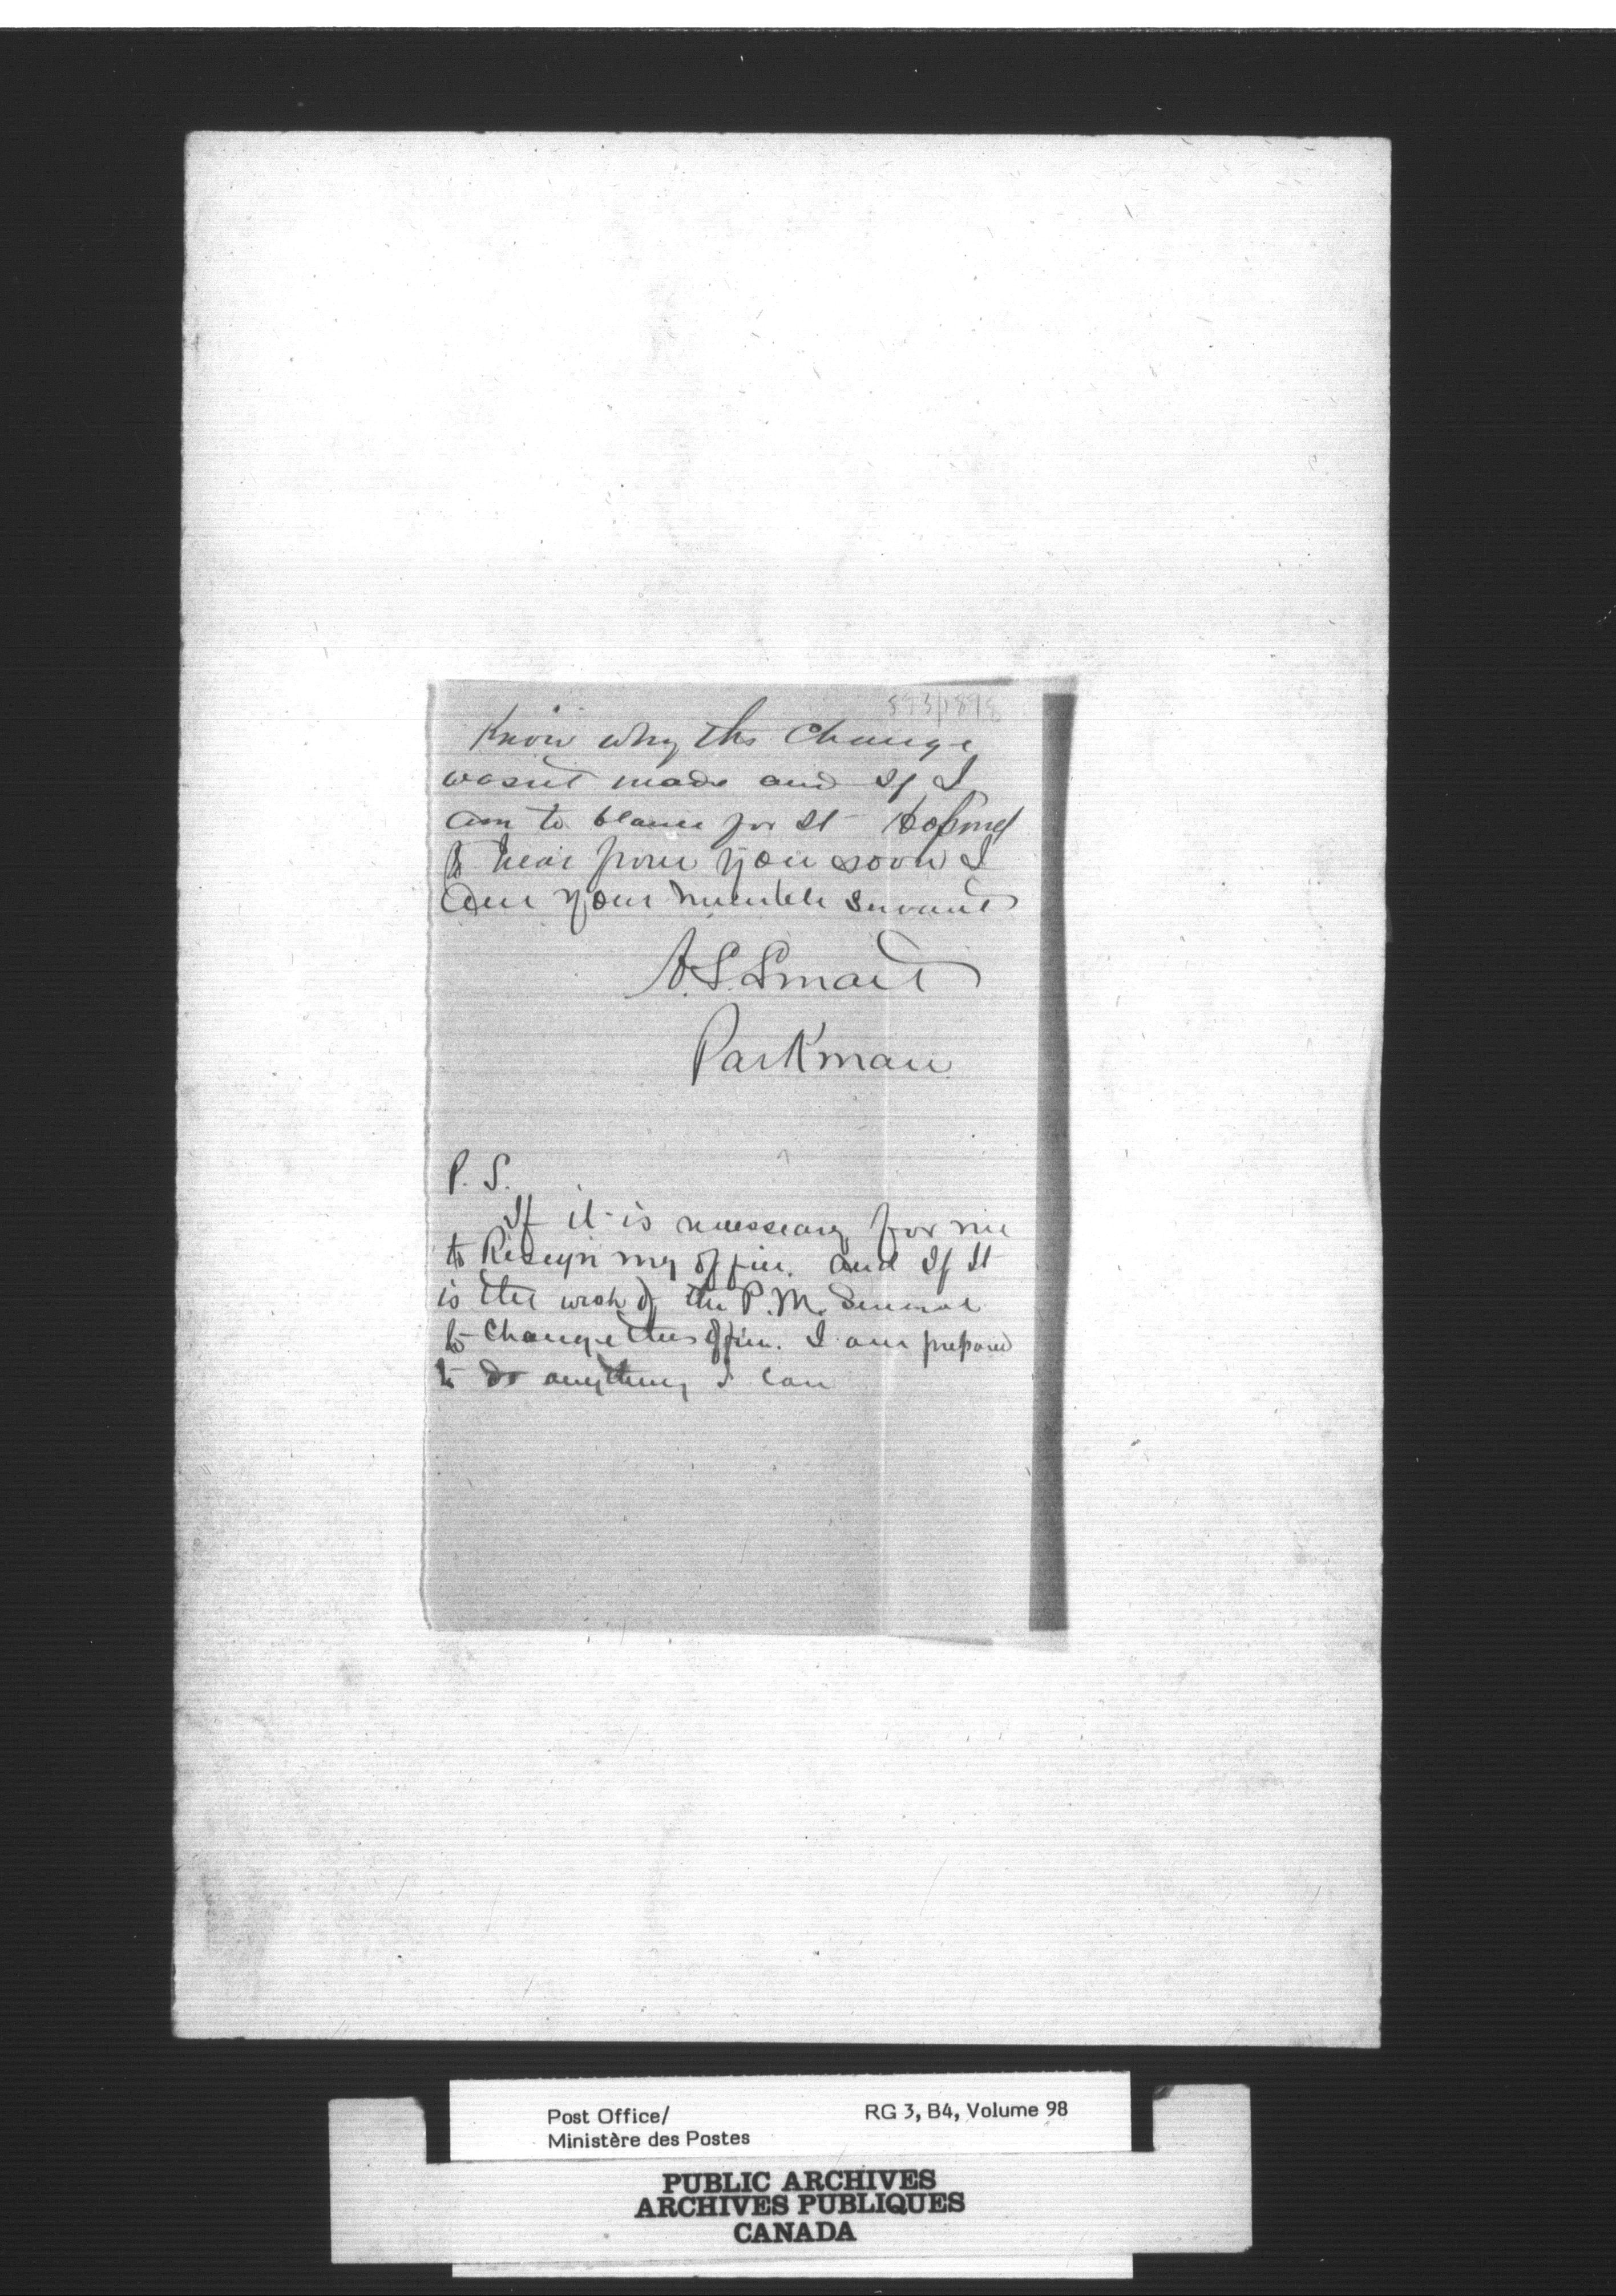 893/1898
Know why the Change
wasent made and If I
am to blame for It Hopeing
to hear from you soon I
am your humble servant
A. S. Smart
Parkman
P. S.
If it is nessecary for me
to Resign my office. and If It
is the wish of the P. M. General
to Change this office. I am prepared
to do anything I can
Post Office/
Ministère des Postes
RG 3, B4, Volume 98
PUBLIC ARCHIVES
ARCHIVES PUBLIQUES
CANADA